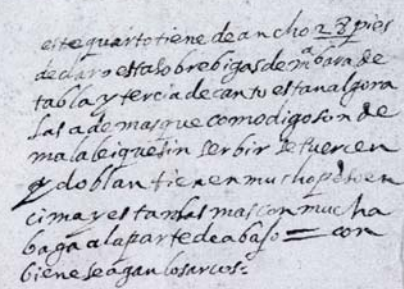 este quarto tiene de ancho 28 pies
de claro esta sobre bigas de mª bara de
tabla y tercia de canto estan algora
das ademas que como digo son de
mala lei que sin serbir se tuercen
y doblan tienen mucho peso en
cima y estanlas mas con mucha
baga a la parte de abajo = con
biene se agan los arcos =